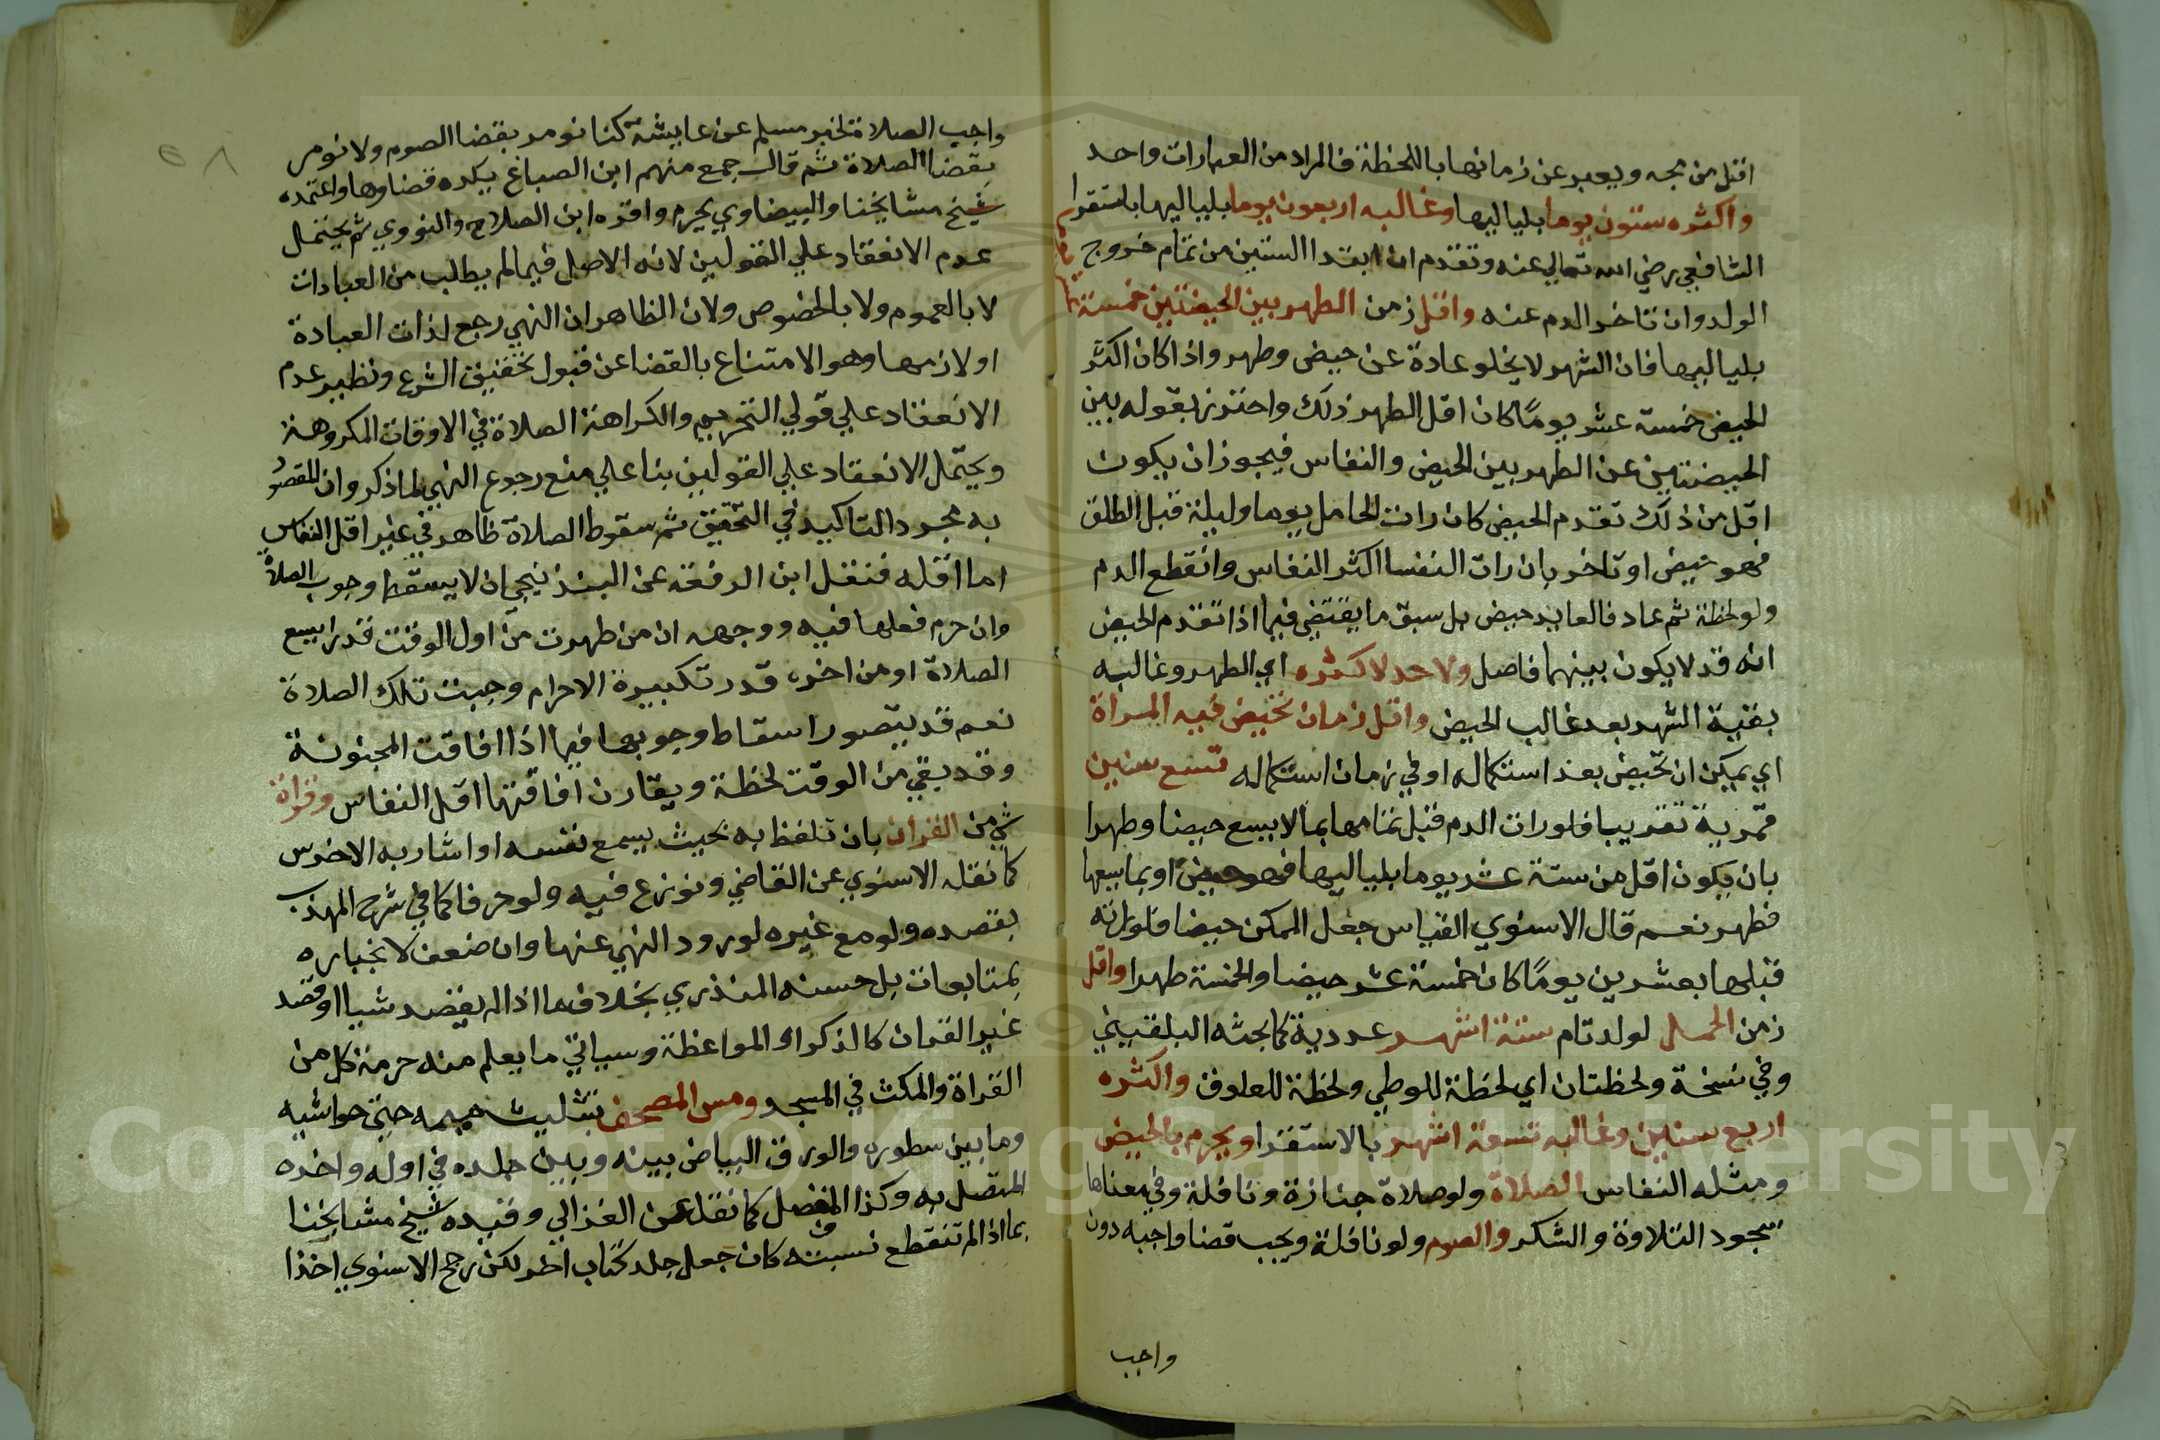 اقل من مجه ويعبر عن زمانها باللحظة فالمراد من العبارات واحد
واكثره ستون يوما بلياليها وغالبه اربعون يوما بلياليها باستقرا
الشافعي رضي الله تعالي عنه وتقدم ان ابتدا الستين من تمام خروج
الولد وان تاخر الدم عنه واقل زمن الطهر بين الحيضتين خمسة
بلياليها فان الشهر لا يخلو عادة عن حيض وطهر واذا كان اكثر
الحيض خمسة عشر يومًا كان اقل الطهر ذلك واحترز بقوله بين
الحيضتين عن الطهر بين الحيض والنفاس فيجوز ان يكون
اقل من ذلك تقدم الحيض كان رات الحامل يوما وليلة قبل الطلق
فهو حيض او تاخر بان رات النفسا اكثر النفاس وانقطع الدم
ولو لحظة ثم عاد فالعايد حيض بل سبق ما يقتضي فيما اذا تقدم الحيض
انه قد لا يكون بينهما فاصل ولا حد لاكثره اي الطهر وغالبه
بقية الشهر بعد غالب الحيض واقل زمان تحيض فيه المراة
اي يمكن ان تحيض بعد استكماله او في زمان استكماله تسع سنين
قمرية تقريبا فلو رات الدم قبل تمامها بما لا يسع حيضا وطهرا
بان يكون اقل من ستة عشر يوما بلياليها فهو حيض او بما يسعها
فطهر نعم قال الاسنوي القياس جعل الممكن حيضا فلو راته
قبلها بعشرين يومًا كان خمسة عشر حيضا والخمسة طهرا واقل
زمن الحمل لولد تام ستة اشهر عددية كما بحثه البلقيني
وفي نسخة ولحظتان اي لحظة للوطي ولحظة للعلوق واكثره
اربع سنين وغالبه تسعة اشهر بالاستقرا ويحرم بالحيض
ومثله النفاس الصلاة ولو صلاة جنازة ونافلة وفي معناها
سجود التلاوة والشكر والصوم ولو نافلة ويجب قضا واجبه دون
واجب
واجب الصلاة لخبر مسلم عن عايشة كنا نومر بقضا الصوم ولا نومر
بقضا الصلاة ثم قال جمع منهم ابن الصباغ يكره قضاوها واعتمده
شيخ مشايخنا والبيضاوي يحرم واقره ابن الصلاح والنووي ثم يحتمل
عدم الانعقاد علي القولين لانه الاصل فيما لم يطلب من العبادات
لا بالعموم ولا بالخصوص ولان الظاهر ان النهي رجع لذات العبادة
او لازمها وهو الامتناع بالقضا عن قبول تخفيف الشرع ونظير عدم
الانعقاد علي قولي التحريم والكراهة الصلاة في الاوقات المكروهة
ويحتمل الانعقاد علي القولين بنا علي منع رجوع النهي لما ذكر وان المقصود
به مجرد التاكيد في التحقيق ثم سقوط الصلاة ظاهر في غير اقل النفاس
اما اقله فنقل ابن الرفعة عن البندنيجي ان لا يسقط وجوب الصلاة
وان حرم فعلها فيه ووجهه ان من طهرت من اول الوقت قدرا يسع
الصلاة او من اخره قدر تكبيرة الاحرام وجبت تلك الصلاة
نعم قد يتصور اسقاط وجوبها فيما اذا افاقت المجنونة
وقد بقي من الوقت لحظة ويقارن افاقتها اقل النفاس وقراة
شي من القران بان تلفظ به بحيث يسمع نفسه او اشار به الاخرس
كما نقله الاسنوي عن القاضي ونوزع فيه ولو حرفا كما في شرح المهذب
بقصده ولو مع غيره لورود النهي عنها وان ضعف لانجباره
بمتابعات بل حسنه المنذري بخلاف ما اذا لم يقصد شيا او قصد
غير القران كالذكر او المواعظة وسياتي ما يعلم منه حرمة كل من
القراة والمكث في المسجد ومس المصحف بتثليث ميمه حتي حواشيه
وما بين سطوره والورق البياض بينه وبين جلده في اوله واخره
المتصل به وكذا المنفصل كما نقل عن الغزالي وقيده شيخ مشايخنا
بما اذا لم تنقطع نسبته كان جعل جلد كتاب اخر لكن رجح الاسنوي اخذا
Copyright © King Saud University